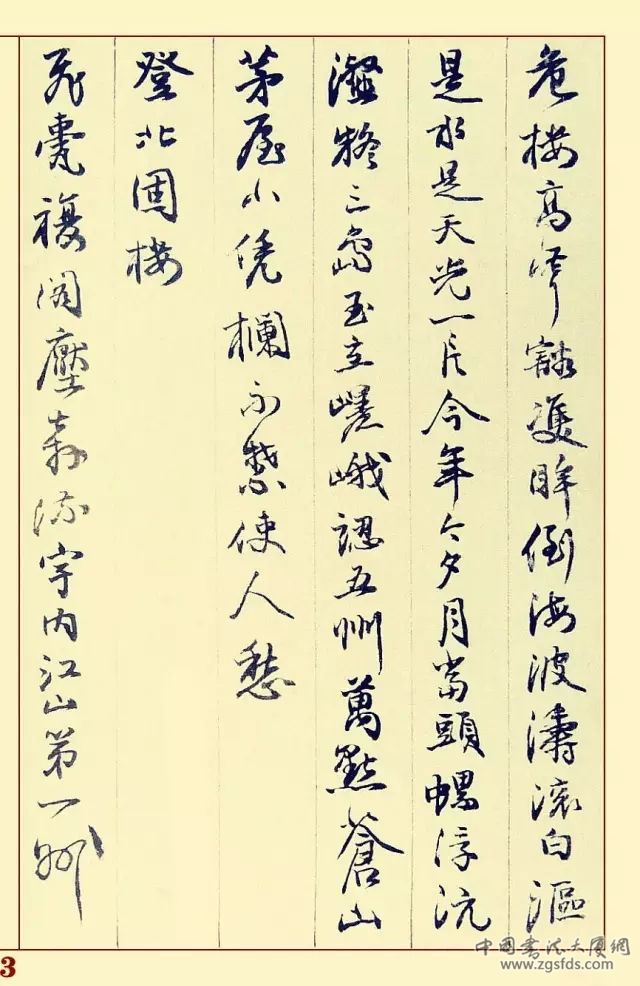 危楼高峙豁雙眸倒海波濤滚白漚
是水是天光一片今年今夕月當頭螺浮沆
瀣三島玉立嵯峨認五州萬點蒼山
茅屋小凭欄不禁使人愁
登北固楼
飛甍複閣壓奔流宇内江山第一州
3
中国书法大厦網
www.zgsfds.com